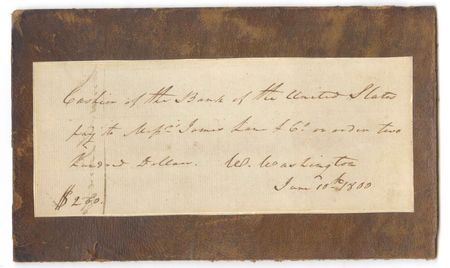 Cashier of the Bank of the United States
pay to Messrs James & Co. or order two
hundred Dollars. W. Washington
Jany. 10th 1800
$ 200.